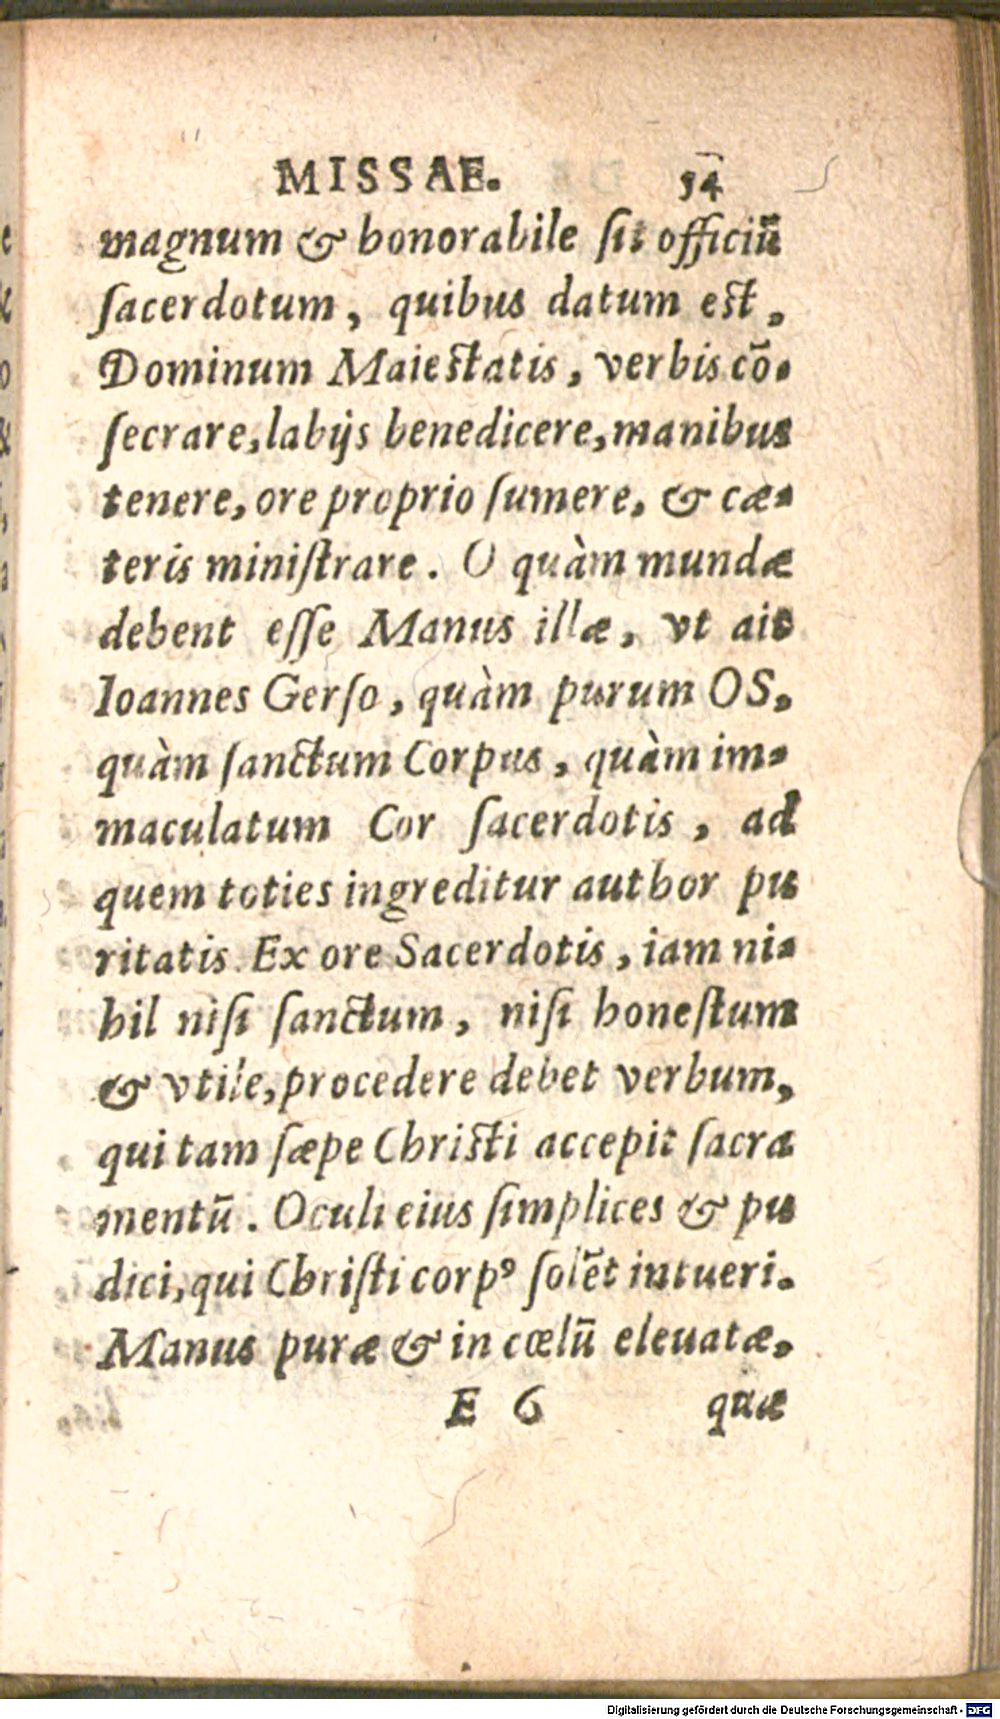 MISSAE. 54
magnum & honorabile ſit officiū
ſacerdotum, quibus datum est,
Dominum Maiestatis, verbis cō-
ſecrare, labijs benedicere, manibus
tenere, ore proprio ſumere, & cæ-
teris miniſtrare. O quàm mundæ
debent eſſe Manus illæ, vt ait
Ioannes Gerſo, quàm purum OS,
quàm ſanctum Corpus, quàm im-
maculatum Cor ſacerdotis, ad
quem toties ingreditur author pu
ritatis. Ex ore Sacerdotis, iam ni-
hil niſi ſanctum, niſi honeſtum
& vtile, procedere debet verbum,
qui tam ſæpe Christi accepit ſacra
mentū. Oculi eius ſimplices & pu
dici, qui Chriſti corpꝰ ſolēt intueri.
Manus puræ & in cœlū eleuatæ,
E 6 quæ
Digitalisierung gefördert durch die Deutsche Forschungsgemeinschaft - DFG